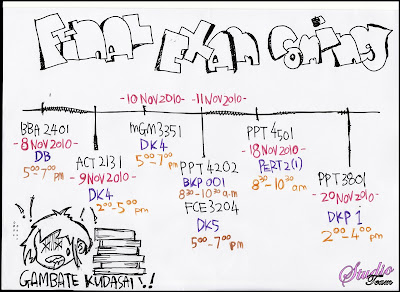 Final Exam Coming
-10 NOV 2010-
-11 NOV 2010-
BBA 2401
-8 NOV 2010-
DB
5:00-7:00 pm
ACT 2131
-9 NOV 2010-
DK4
2:00-5:00 pm
MGM3351
DK4
5:00-7:00 pm
PPT 4202
BKP 001
8:30-10:30 a.m
FCE3204
DK5
5:00-7:00 pm
PPT 4501
-18 NOV 2010-
PERT 2(1)
8:30-10:30 am
PPT 3801
-20 NOV 2010-
DKP 1
2:00-4:00 pm
GAMBATE KUDASAI!!
Studio
Team